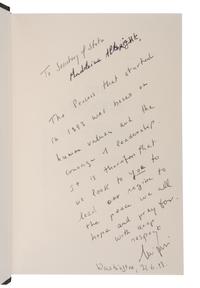 To Secretary of State
Madeleine Albright,
The Process that started
in 1993 was based on
human values and the
courage of leadership.
It is therefore that
we look to you to
lead our region to
the peace we all
hope and pray for.
with deep
respect
Washington,